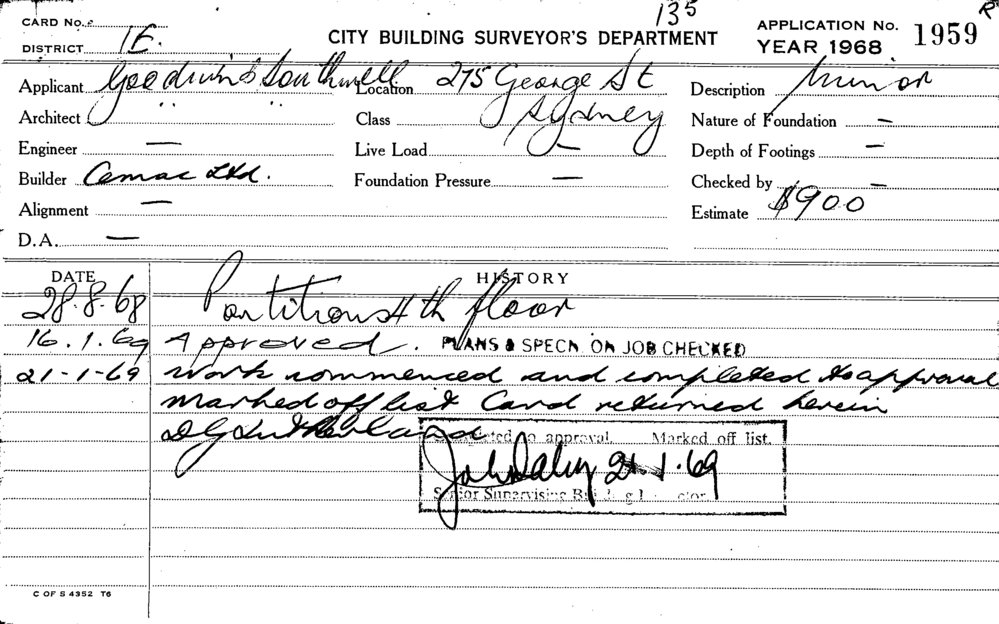 135 R
CARD No.
DISTRICT 1E.
CITY BUILDING SURVEYOR'S DEPARTMENT
APPLICATION No. 1959
YEAR 1968
Applicant Goodwin & Southwell
Location 275 George St
Description Minor
Architect " "
Class Sydney
Nature of Foundation —
Engineer —
Live Load —
Depth of Footings —
Builder Cemac Ltd.
Foundation Pressure —
Checked by —
Alignment —
Estimate $900
D.A. —
DATE HISTORY
28.8.68 Partitions 4th floor
16.1.69 Approved. PLANS & SPECN. ON JOB CHECKED
21-1-69 Work commenced and completed to approval
marked off list Card returned herein
D G Sutherland
Completed to approval. Marked off list.
21.1.69
Senior Supervising Building Inspector
C OF S 4352 T6